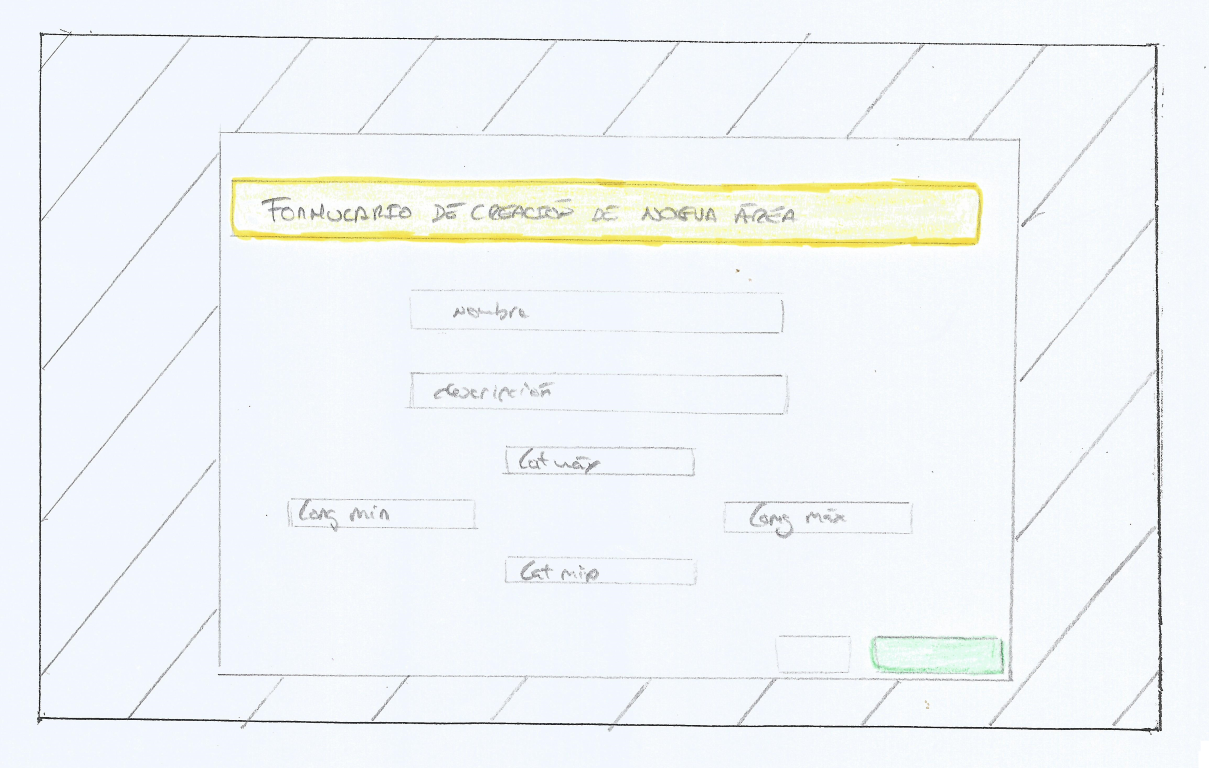 FORMULARIO DE CREACIÓN DE NUEVA ÁREA
Nombre
descripción
Lat máx
Long min
Long máx
Lat min